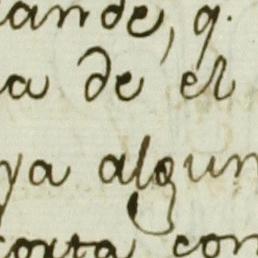 ande, q.
a de el
ya algun
corta con